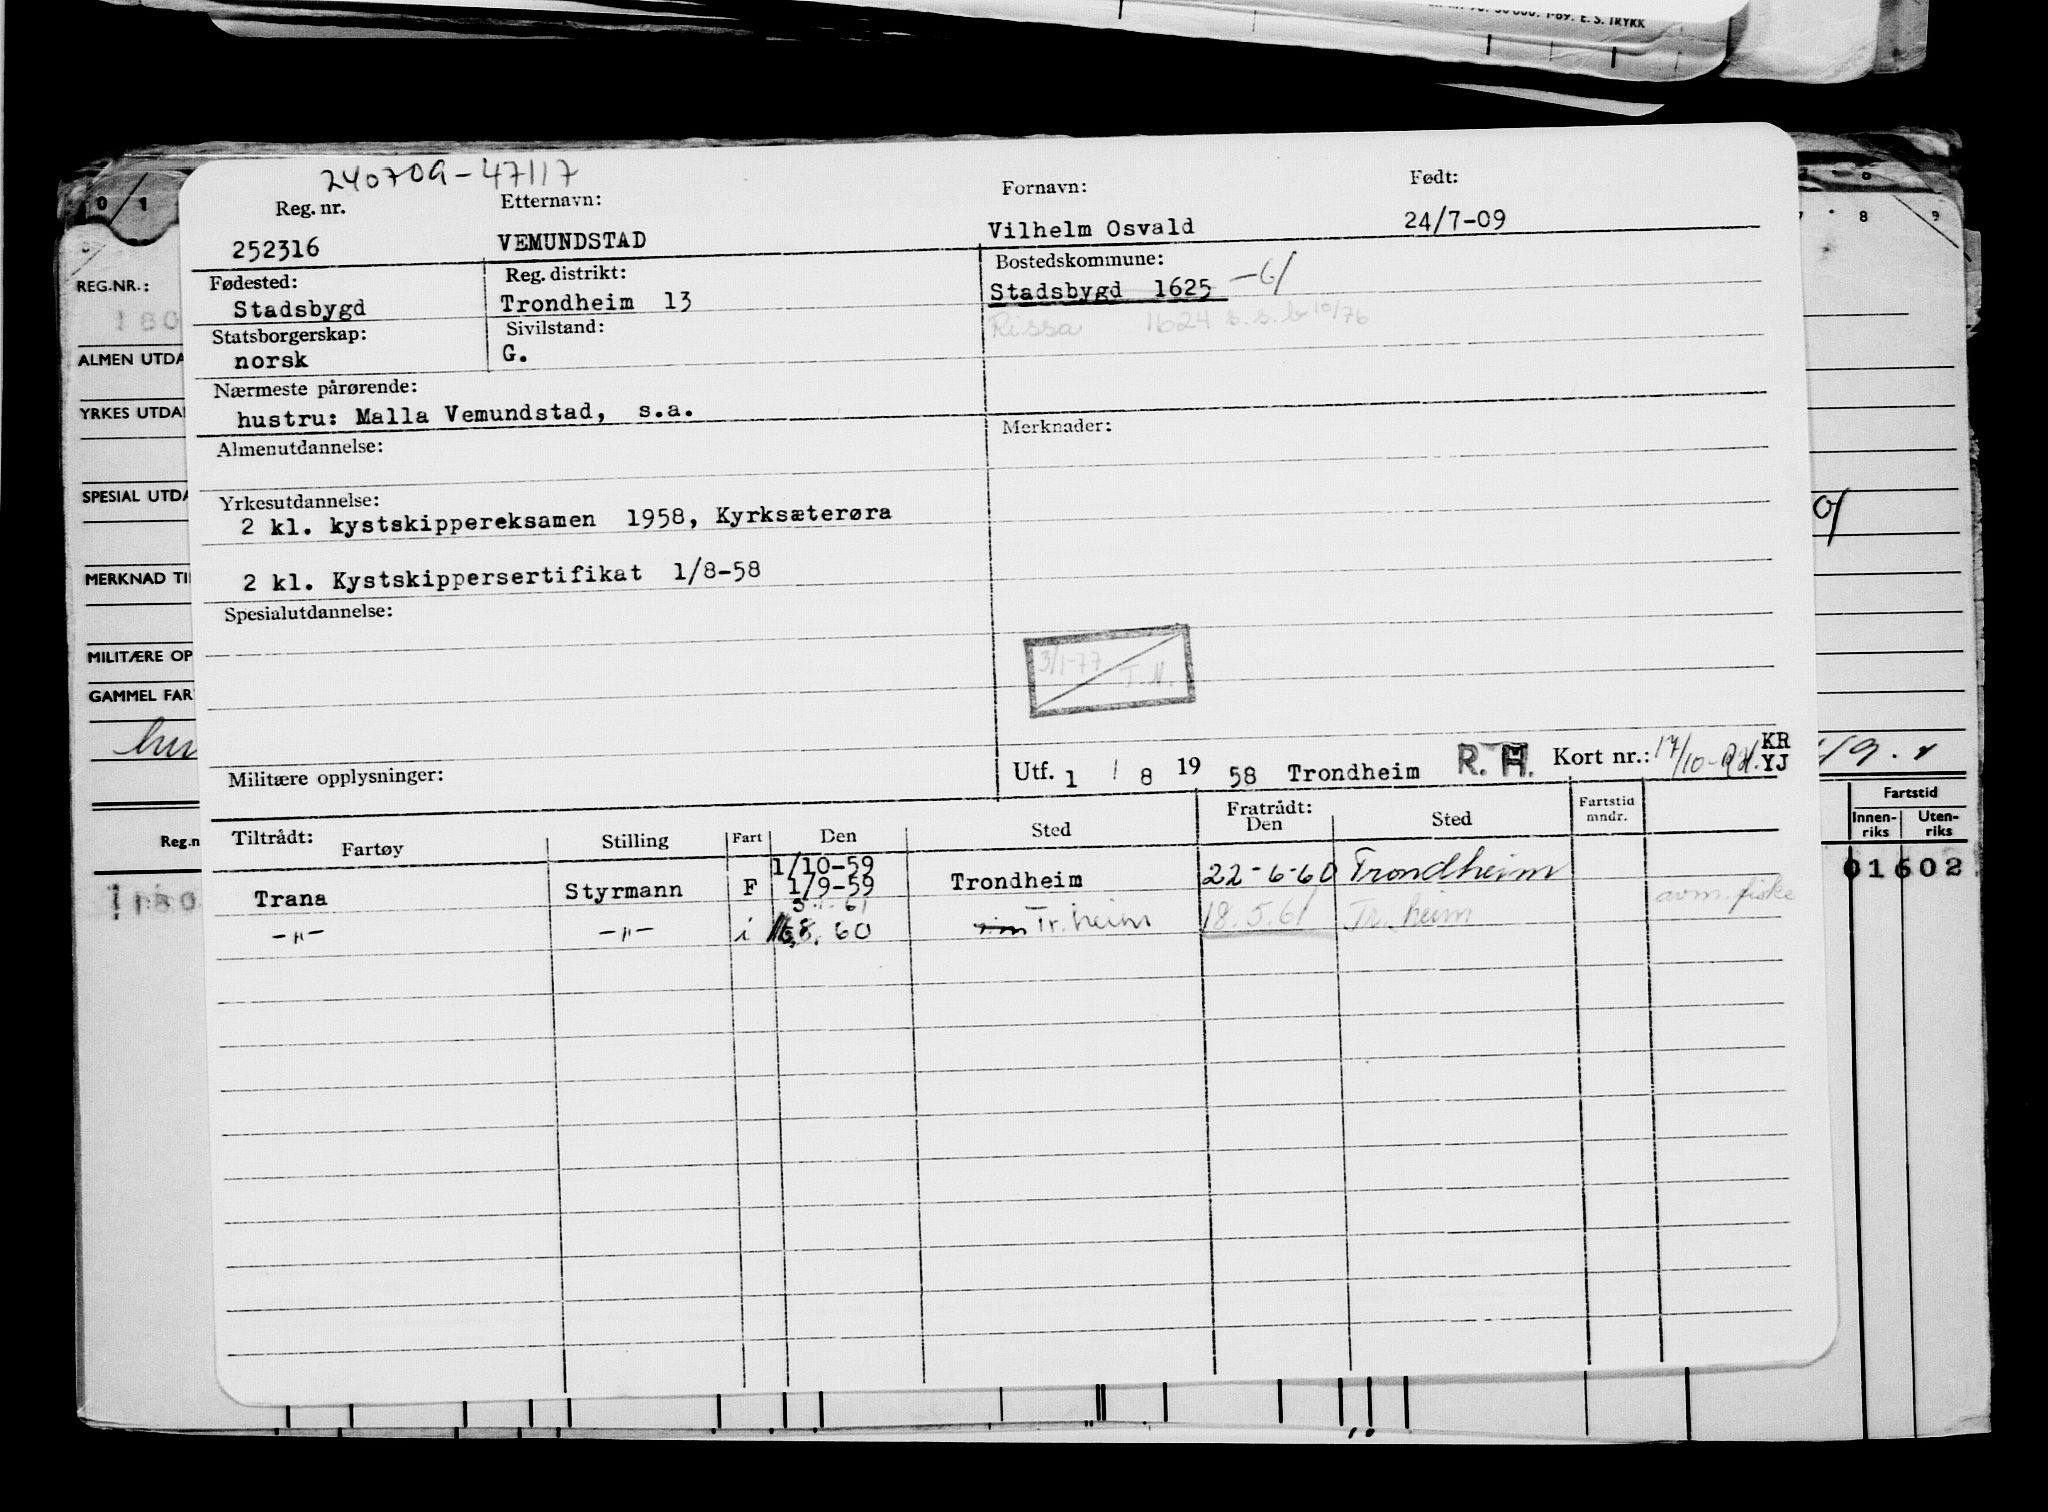 NR. 90. 50 000. 1-69. E. S. TRYKK
240709-47117
Reg. nr. Etternavn: Fornavn: Født:
252316 VEMUNDSTAD Vilhelm Osvald 24/7-09
Fødested: Reg. distrikt: Bostedskommune:
Stadsbygd Trondheim 13 Stadsbygd 1625
Statsborgerskap: Sivilstand: Rissa 1624 s.s.b 10/76
norsk G.
Nærmeste pårørende:
hustru: Malla Vemundstad, s.a.
Almenutdannelse: Merknader:
Yrkesutdannelse:
2 kl. kystskippereksamen 1958, Kyrksæterøra
2 kl. Kystskippersertifikat 1/8-58
Spesialutdannelse:
3/1-77 T.N.
Militære opplysninger: Utf. 1 / 8 19 58 Trondheim R. H. Kort nr.: 17/10- KR
YJ
Tiltrådt: Fratrådt:
Fartøy Stilling Fart Den Sted Den Sted Fartstid mndr.
1/10-59
Trana Styrmann F 1/9-59 Trondheim 22-6-60 Trondheim
3.1.61 avm. fiske
-"- -"- i 8. 60 Tr.heim 18.5.61 Tr.heim
0 1
7 8 9
REG.NR.:
180
ALMEN UTDA
YRKES UTDA
SPESIAL UTDA
MERKNAD TI
MILITÆRE OP
GAMMEL FAR
Reg.n
180
Fartstid
Innen-riks Uten-riks
01602